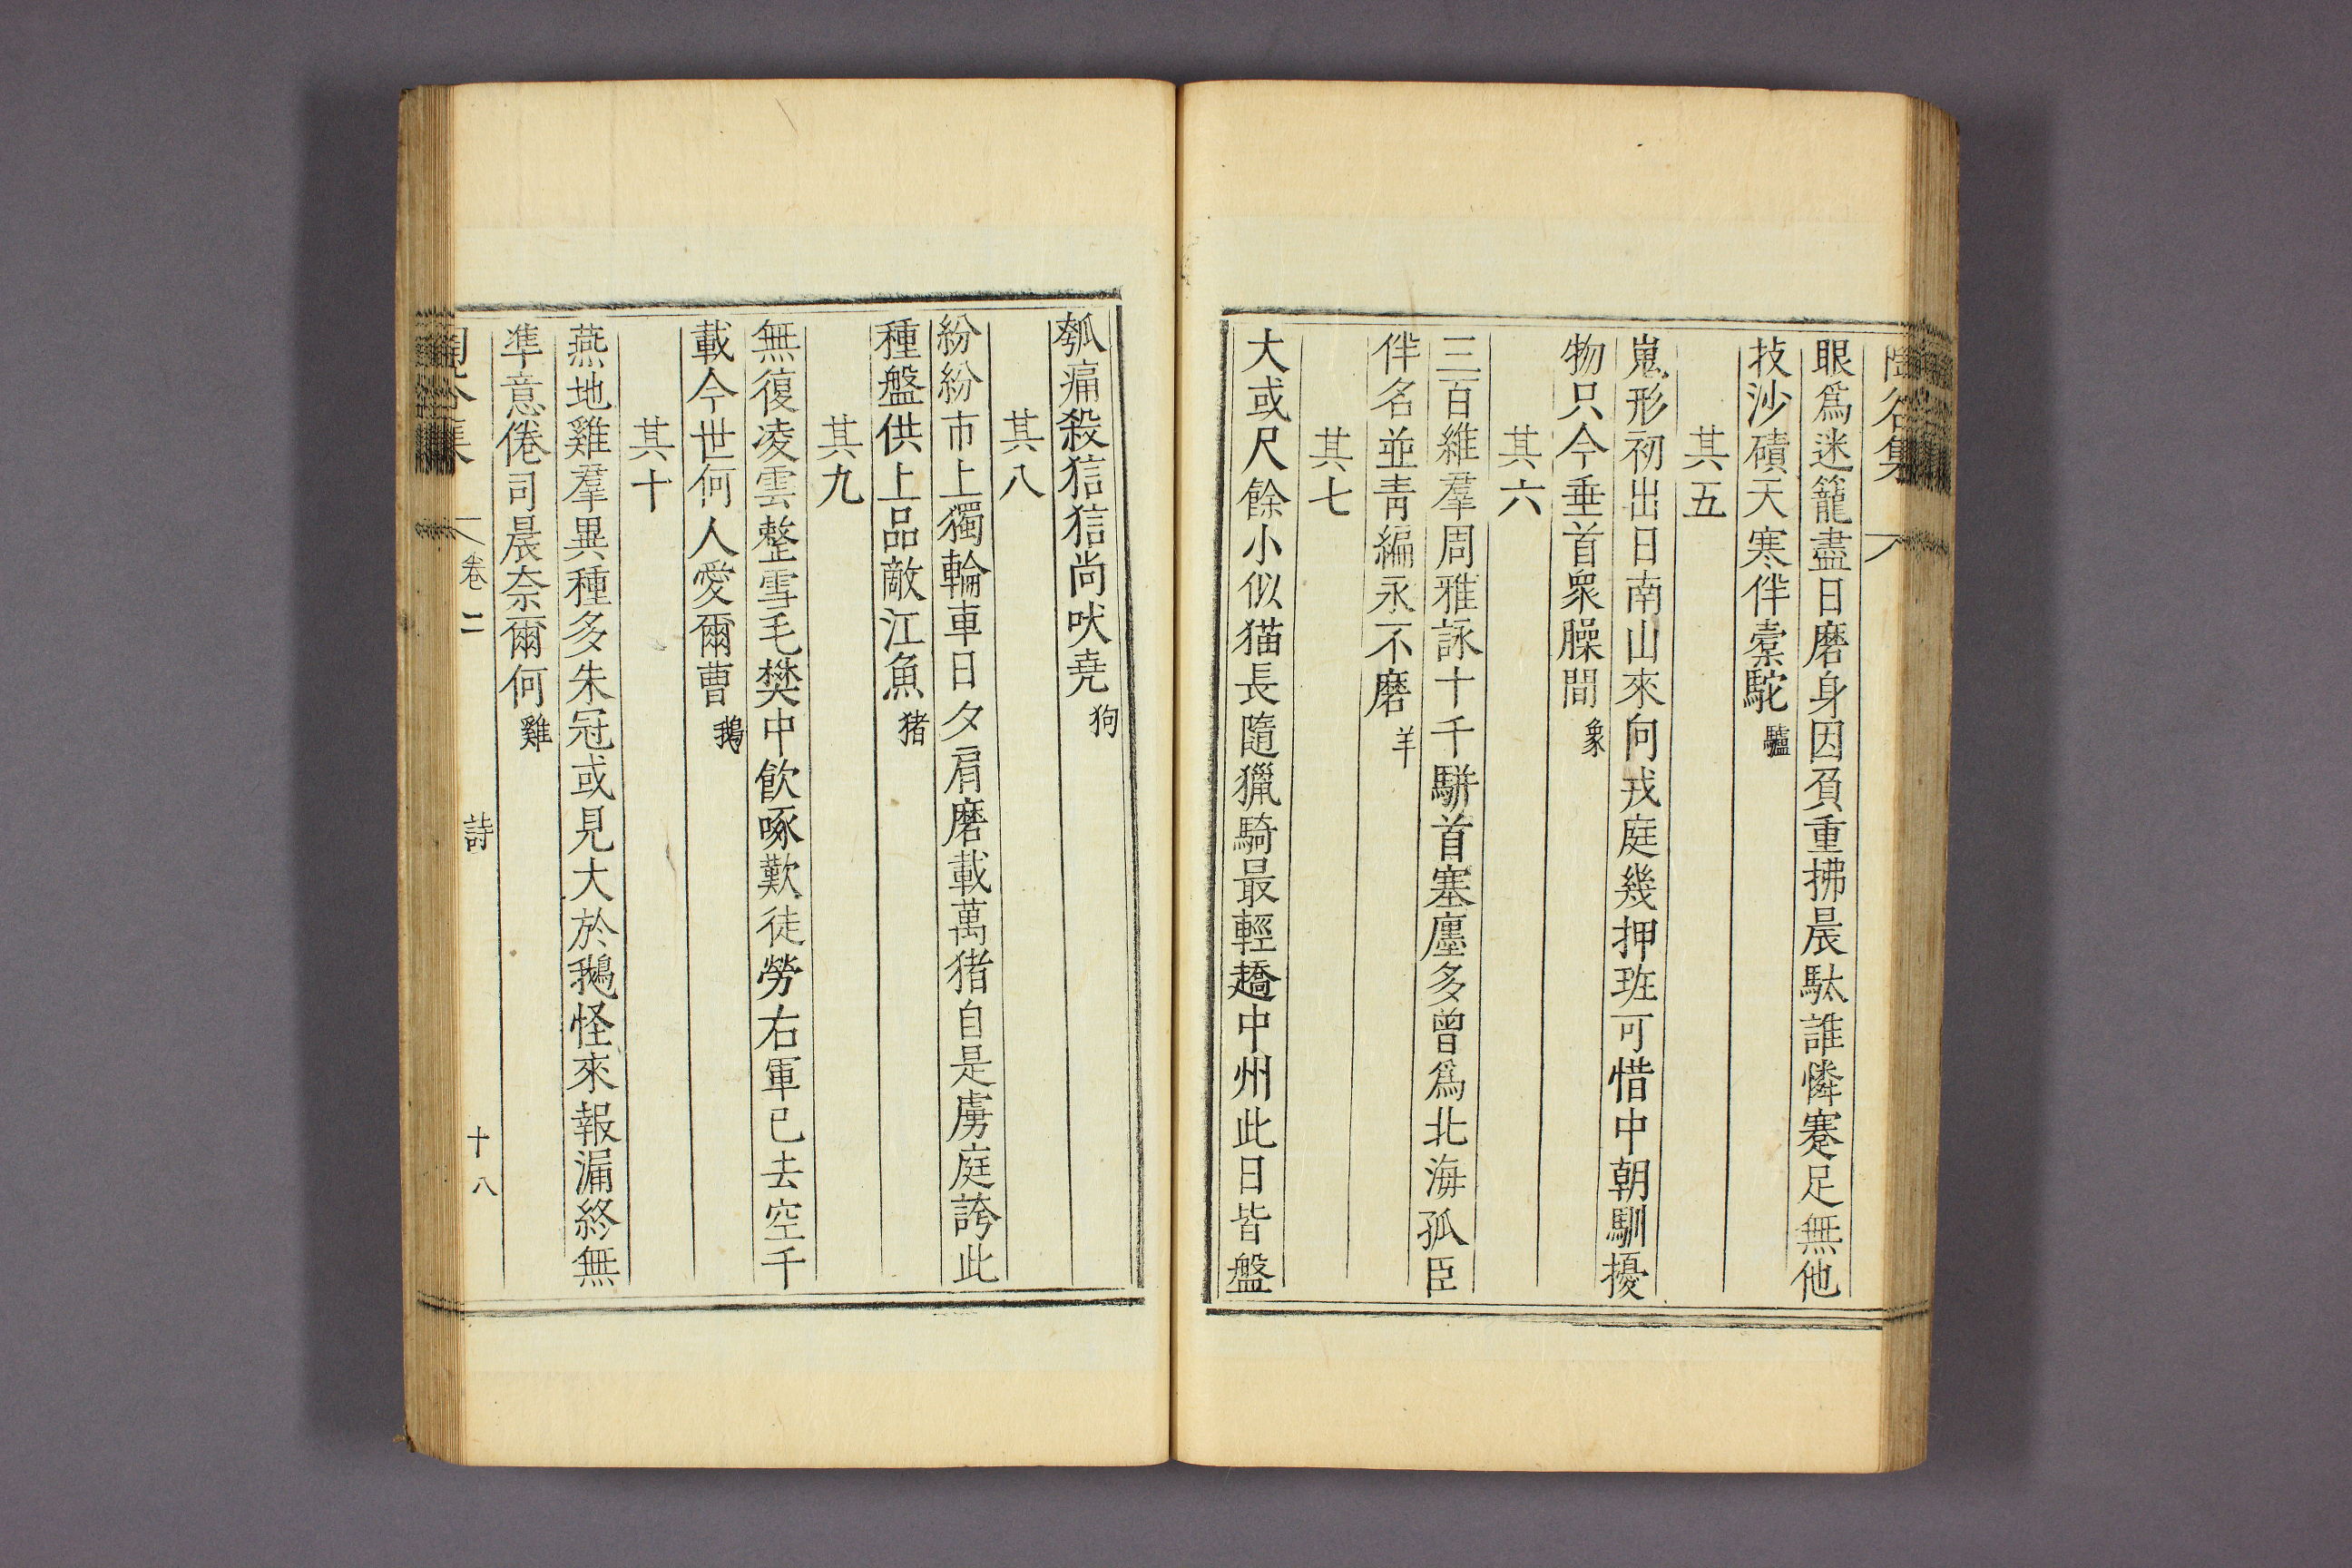 眼爲迷籠盡日磨身因負重拂晨馱誰憐蹇足無他
技沙磧天寒伴橐駝驢
其五
嵬形初出日南山來向戎庭幾押班可惜中朝馴擾
物只今垂首衆臊間象
其六
三百維羣周雅詠十千駢首塞廛多曾爲北海孤臣
伴名並靑編永不磨羊
其七
大或尺餘小似猫長隨獵騎最輕趫中州此日皆盤
瓠痛殺狺狺尚吠堯狗
其八
紛紛市上獨輪車日夕肩磨載萬猪自是虜庭誇此
種盤供上品敵江魚猪
其九
無復凌雲整雪毛樊中飮啄歎徒勞右軍已去空千
載今世何人愛爾曹鵝
其十
燕地雞羣異種多朱冠或見大於鵝怪來報漏終無
準意倦司晨奈爾何雞
卷二 詩 十八